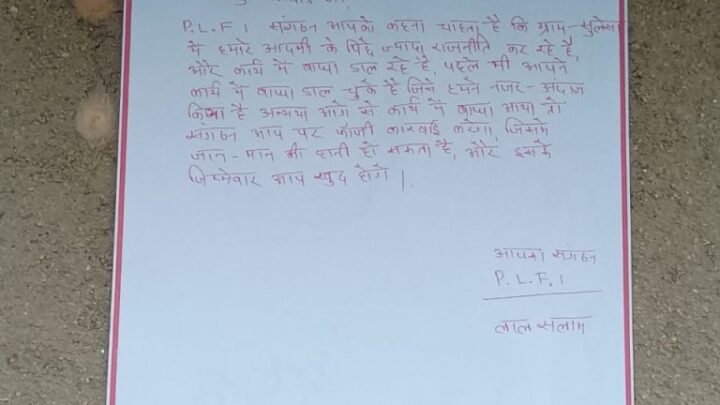 P.L.F.I संगठन आपको कहना चाहता है कि ग्राम-सुलेसा
में हमारे आदमी के पिछे ज्यादा राजनीति कर रहे है,
और कार्य में बाधा डाल रहे है, पहले भी आपने
कार्य में बाधा डाल चुके है जिसे हमने नजर-अंदाज
किया है अन्यथा आगे से कार्य में बाधा आया तो
संगठन आप पर फौजी कारवाई करेगा, जिसमे
जान-माल की हानी हो सकता है, और इसके
जिम्मेवार आप खुद होगे।
आपका संगठन
P.L.F.I
लाल सलाम